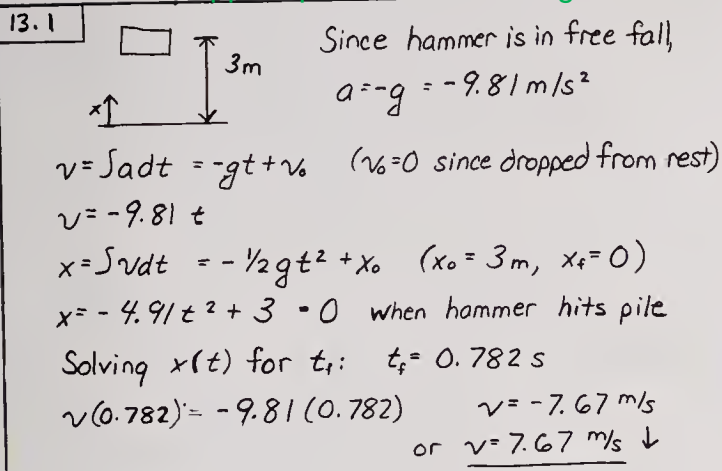 13.1
Since hammer is in free fall,
3m
a=-g = -9.81 m/s²
x↑
v=∫adt = -gt+v₀ (v₀=0 since dropped from rest)
v=-9.81 t
x=∫vdt = -½gt² +x₀ (x₀=3m, x_f=0)
x=-4.91t²+3=0 when hammer hits pile
Solving x(t) for t_f: t_f=0.782 s
v(0.782)=-9.81(0.782) v=-7.67 m/s
or v=7.67 m/s ↓